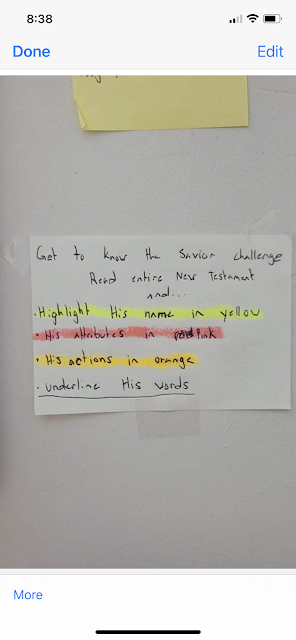 8:38
Done
Edit
Get to know the Savior challenge
Read entire New Testament
and...
• Highlight His name in yellow
• His Attributes in Pink
• His actions in orange
• underline His words
More